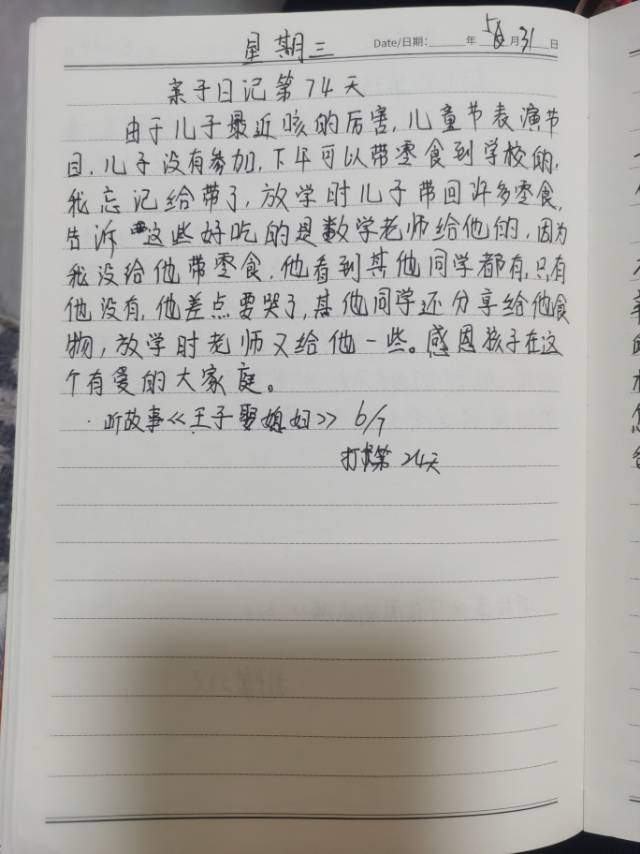 星期三 Date/日期: 年 5月31日
亲子日记第74天
由于儿子最近咳的厉害,儿童节表演节
目,儿子没有参加,下午可以带零食到学校的,
我忘记给带了,放学时儿子带回许多零食,
告诉 这些好吃的是数学老师给他的,因为
我没给他带零食,他看到其他同学都有,只有
他没有,他差点要哭了,其他同学还分享给他食
物,放学时老师又给他一些。感恩孩子在这
个有爱的大家庭。
·听故事《王子娶媳妇》 6/7
打卡第24天